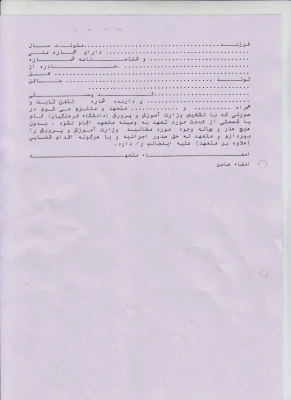 فرزند............................متولد سال
.......................... دارای شماره ملی
...................... و شناسنامه شماره
......................صادره از
..................... شغل
تولد ......................... ساکن
.................کد پستی
................ و دارنده شماره تلفن ثابت و
همراه ........... و ........... متعهد و ملتزم می شوم در
صورتی که با تشخیص وزارت آموزش و پرورش (دانشگاه فرهنگیان) تمام
یا قسمتی از خدمت مورد تعهد به وسیله متعهد انجام نشود ، بدون
هیچ عذر و بهانه وجوه مورد مطالبه وزارت آموزش و پرورش را
بپردازم و متعهد له حق صدور اجرائیه و یا هرگونه اقدام قضایی
(علاوه بر متعهد) علیه اینجانب را دارد.
امضاء متعهد
امضاء ضامن